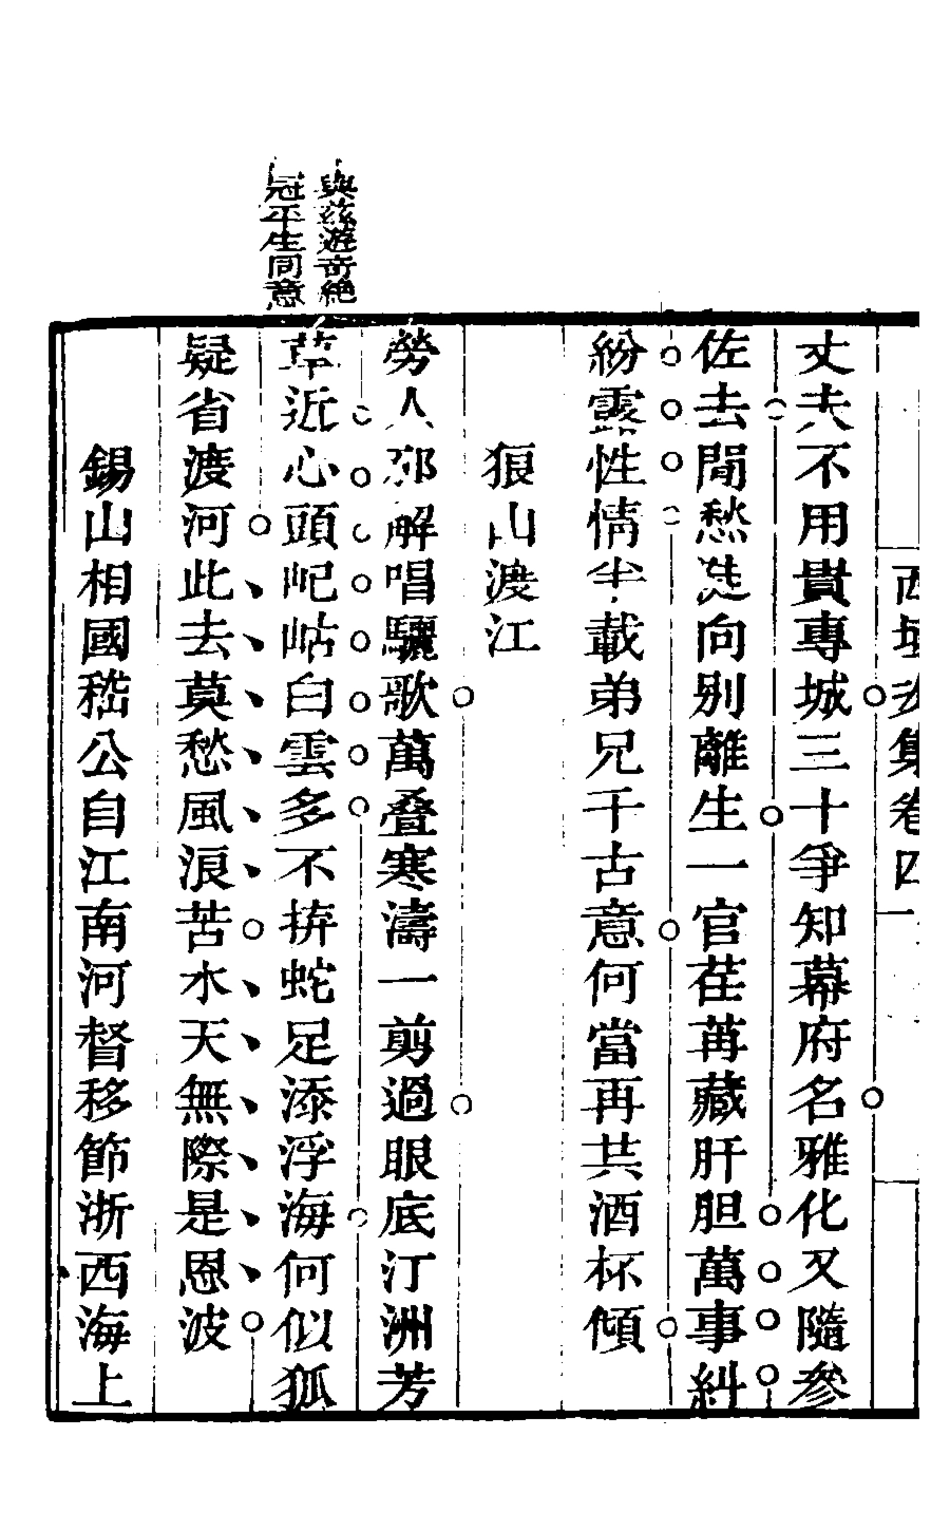 集卷四
丈夫不用貴專城三十爭知幕府名雅化又隨參
佐去閒愁迸向別離生一官荏苒藏肝胆萬事糾
紛露性情半載弟兄千古意何當再共酒杯傾
狼山渡江
勞人那解唱驪歌萬叠寒濤一剪過眼底汀洲芳
草近心頭屺岵白雲多不拚蛇足添浮海何似狐
疑省渡河此去莫愁風浪苦水天無際是恩波
錫山相國嵇公自江南河督移節浙西海上
與茲遊奇絕
冠平生同意